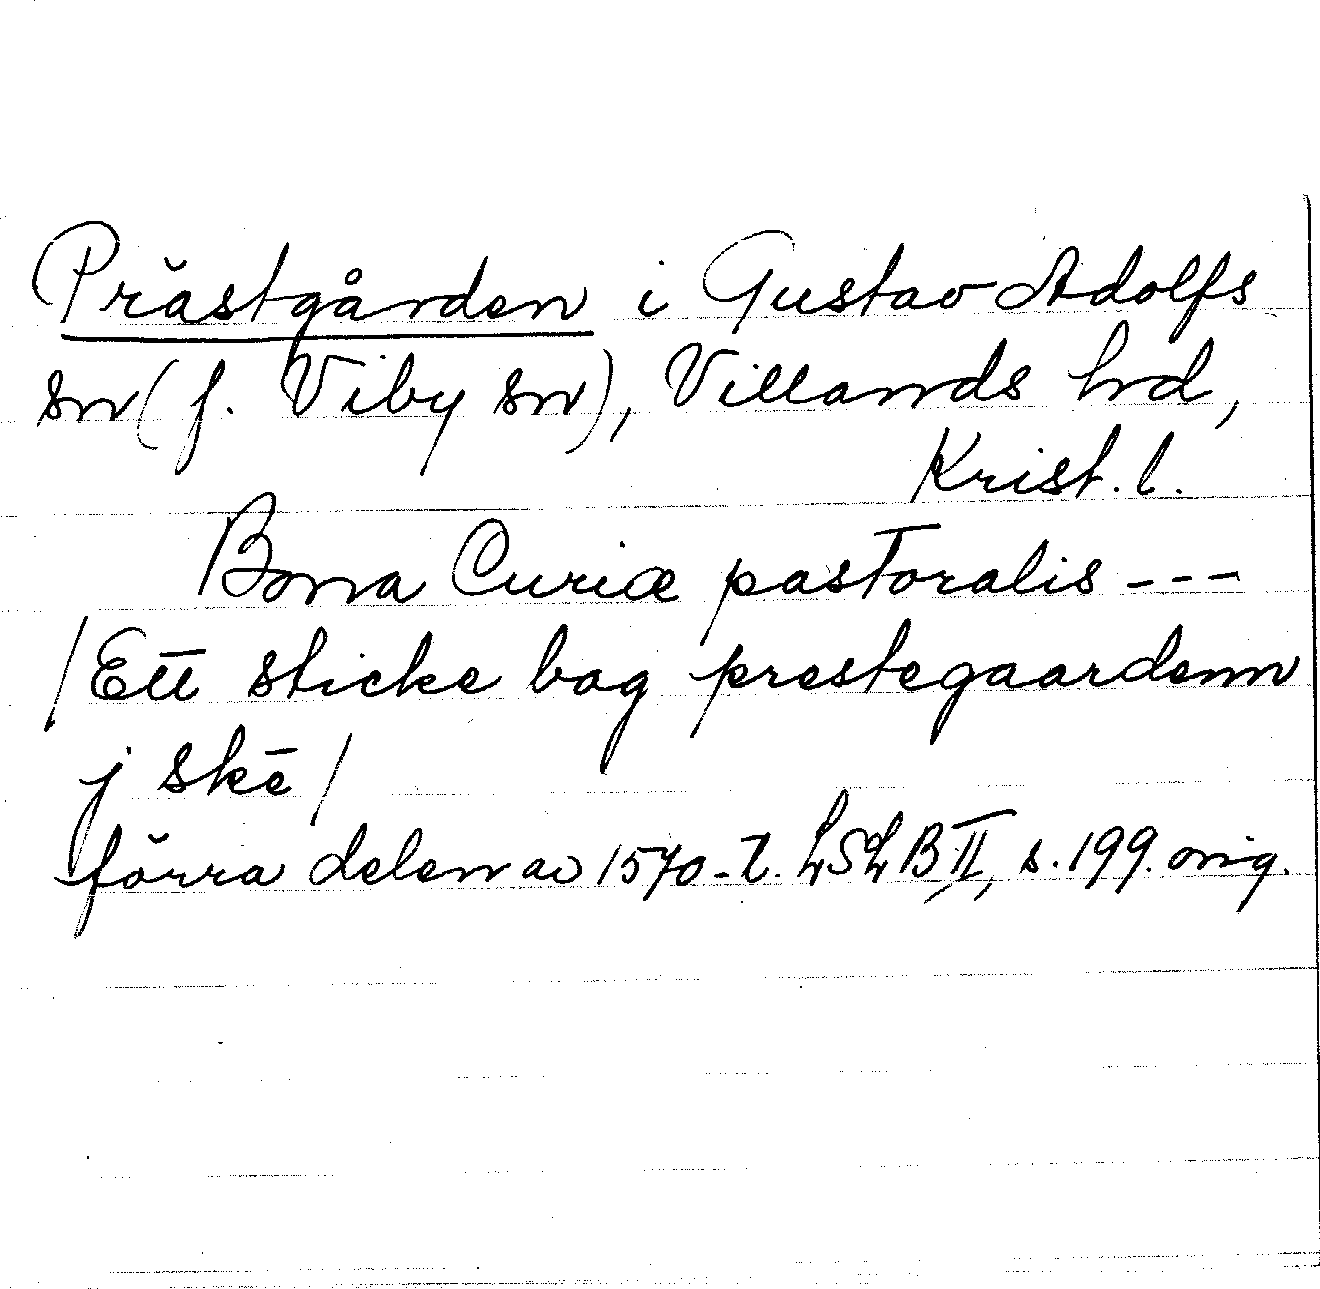 Prästgården i Gustav Adolfs
sn (f. Viby sn), Villands hd,
Krist. l.
Bona Curiæ pastoralis ---
/Ett sticke bag prestegaardenn
j skē/
förra delen av 1570-t. LSLB II, s. 199. orig.